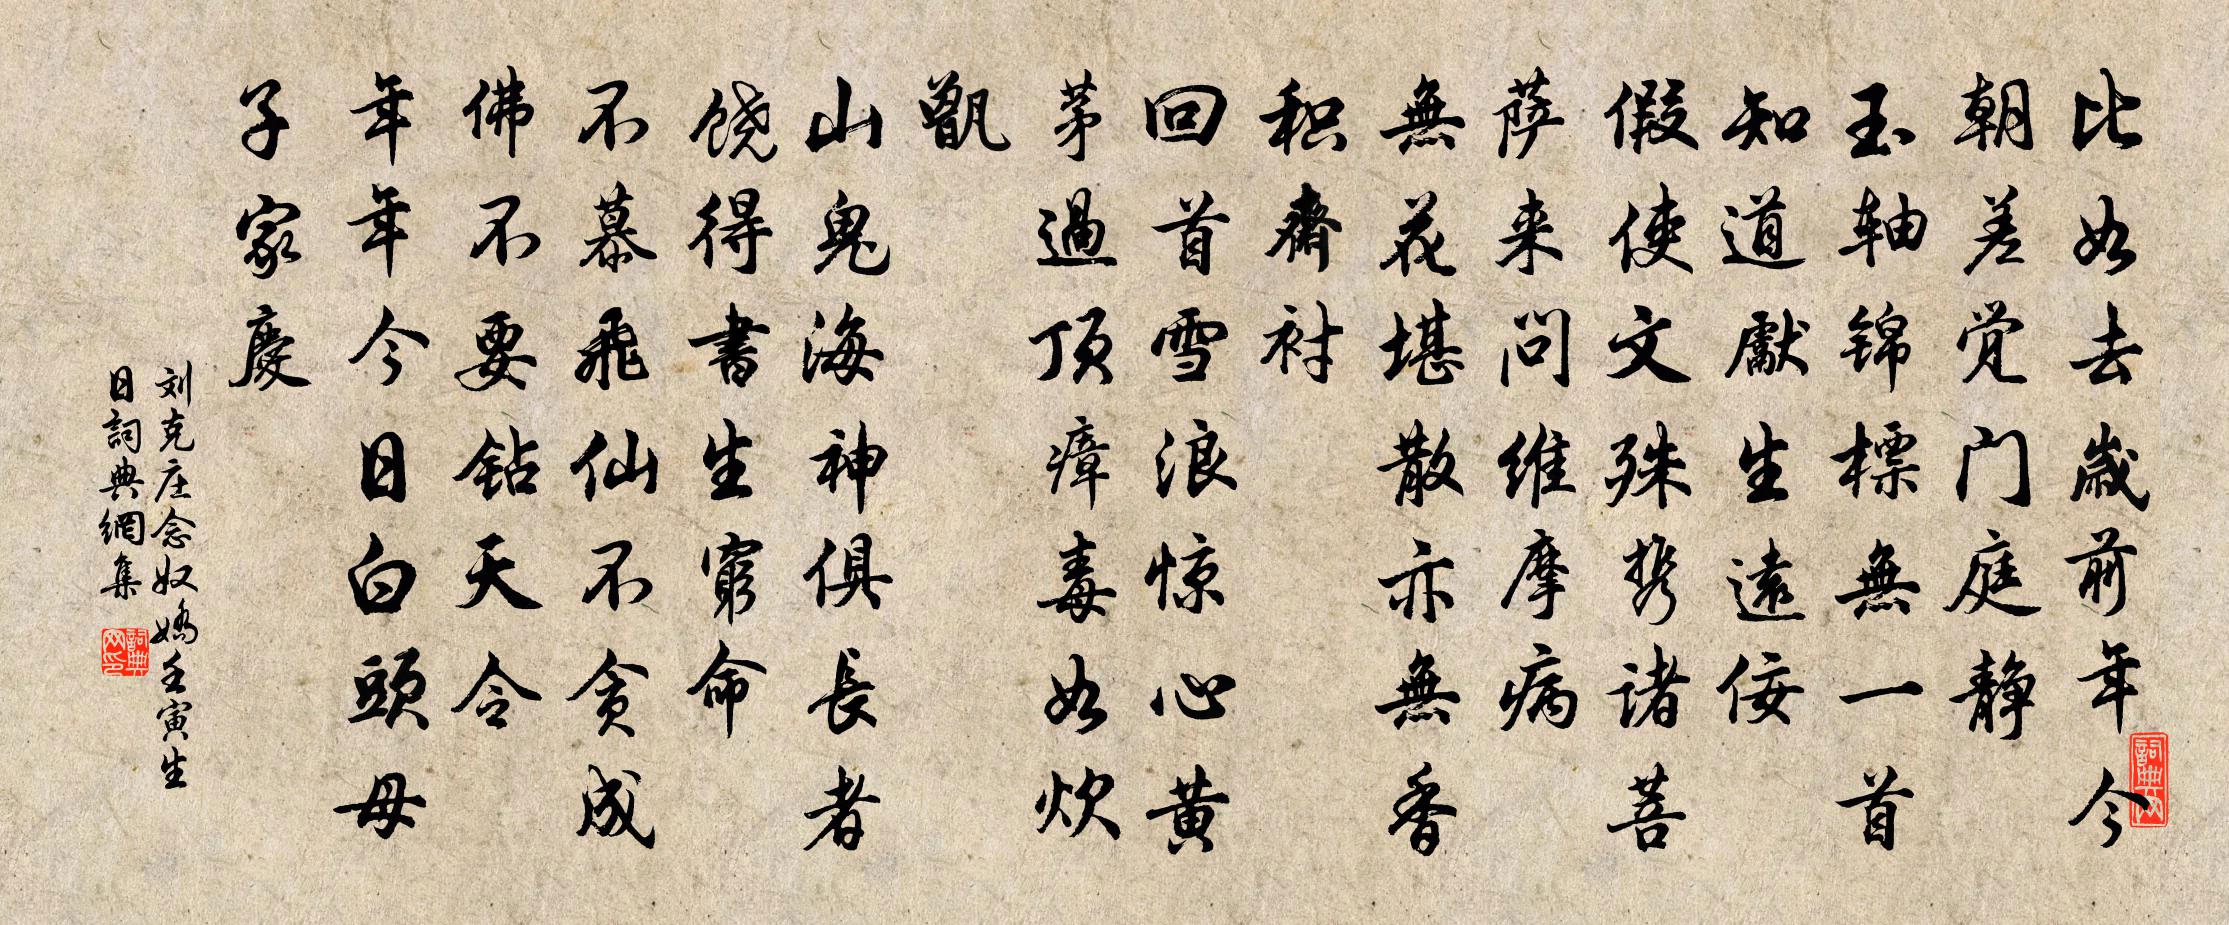 比如去歲前年今
朝差觉门庭静
玉轴锦標無一首
知道獻生遠佞
假使文殊携诸菩
萨来问维摩病
無花堪散亦無香
积齋衬
回首雪浪惊心黄
茅過顶瘴毒如炊
甑
山鬼海神俱長者
饶得書生窮命
不慕飛仙不贪成
佛不要钻天令
年年今日白頭母
子家慶
刘克庄念奴嬌壬寅生
日詞典網集
詞典网
詞典网印